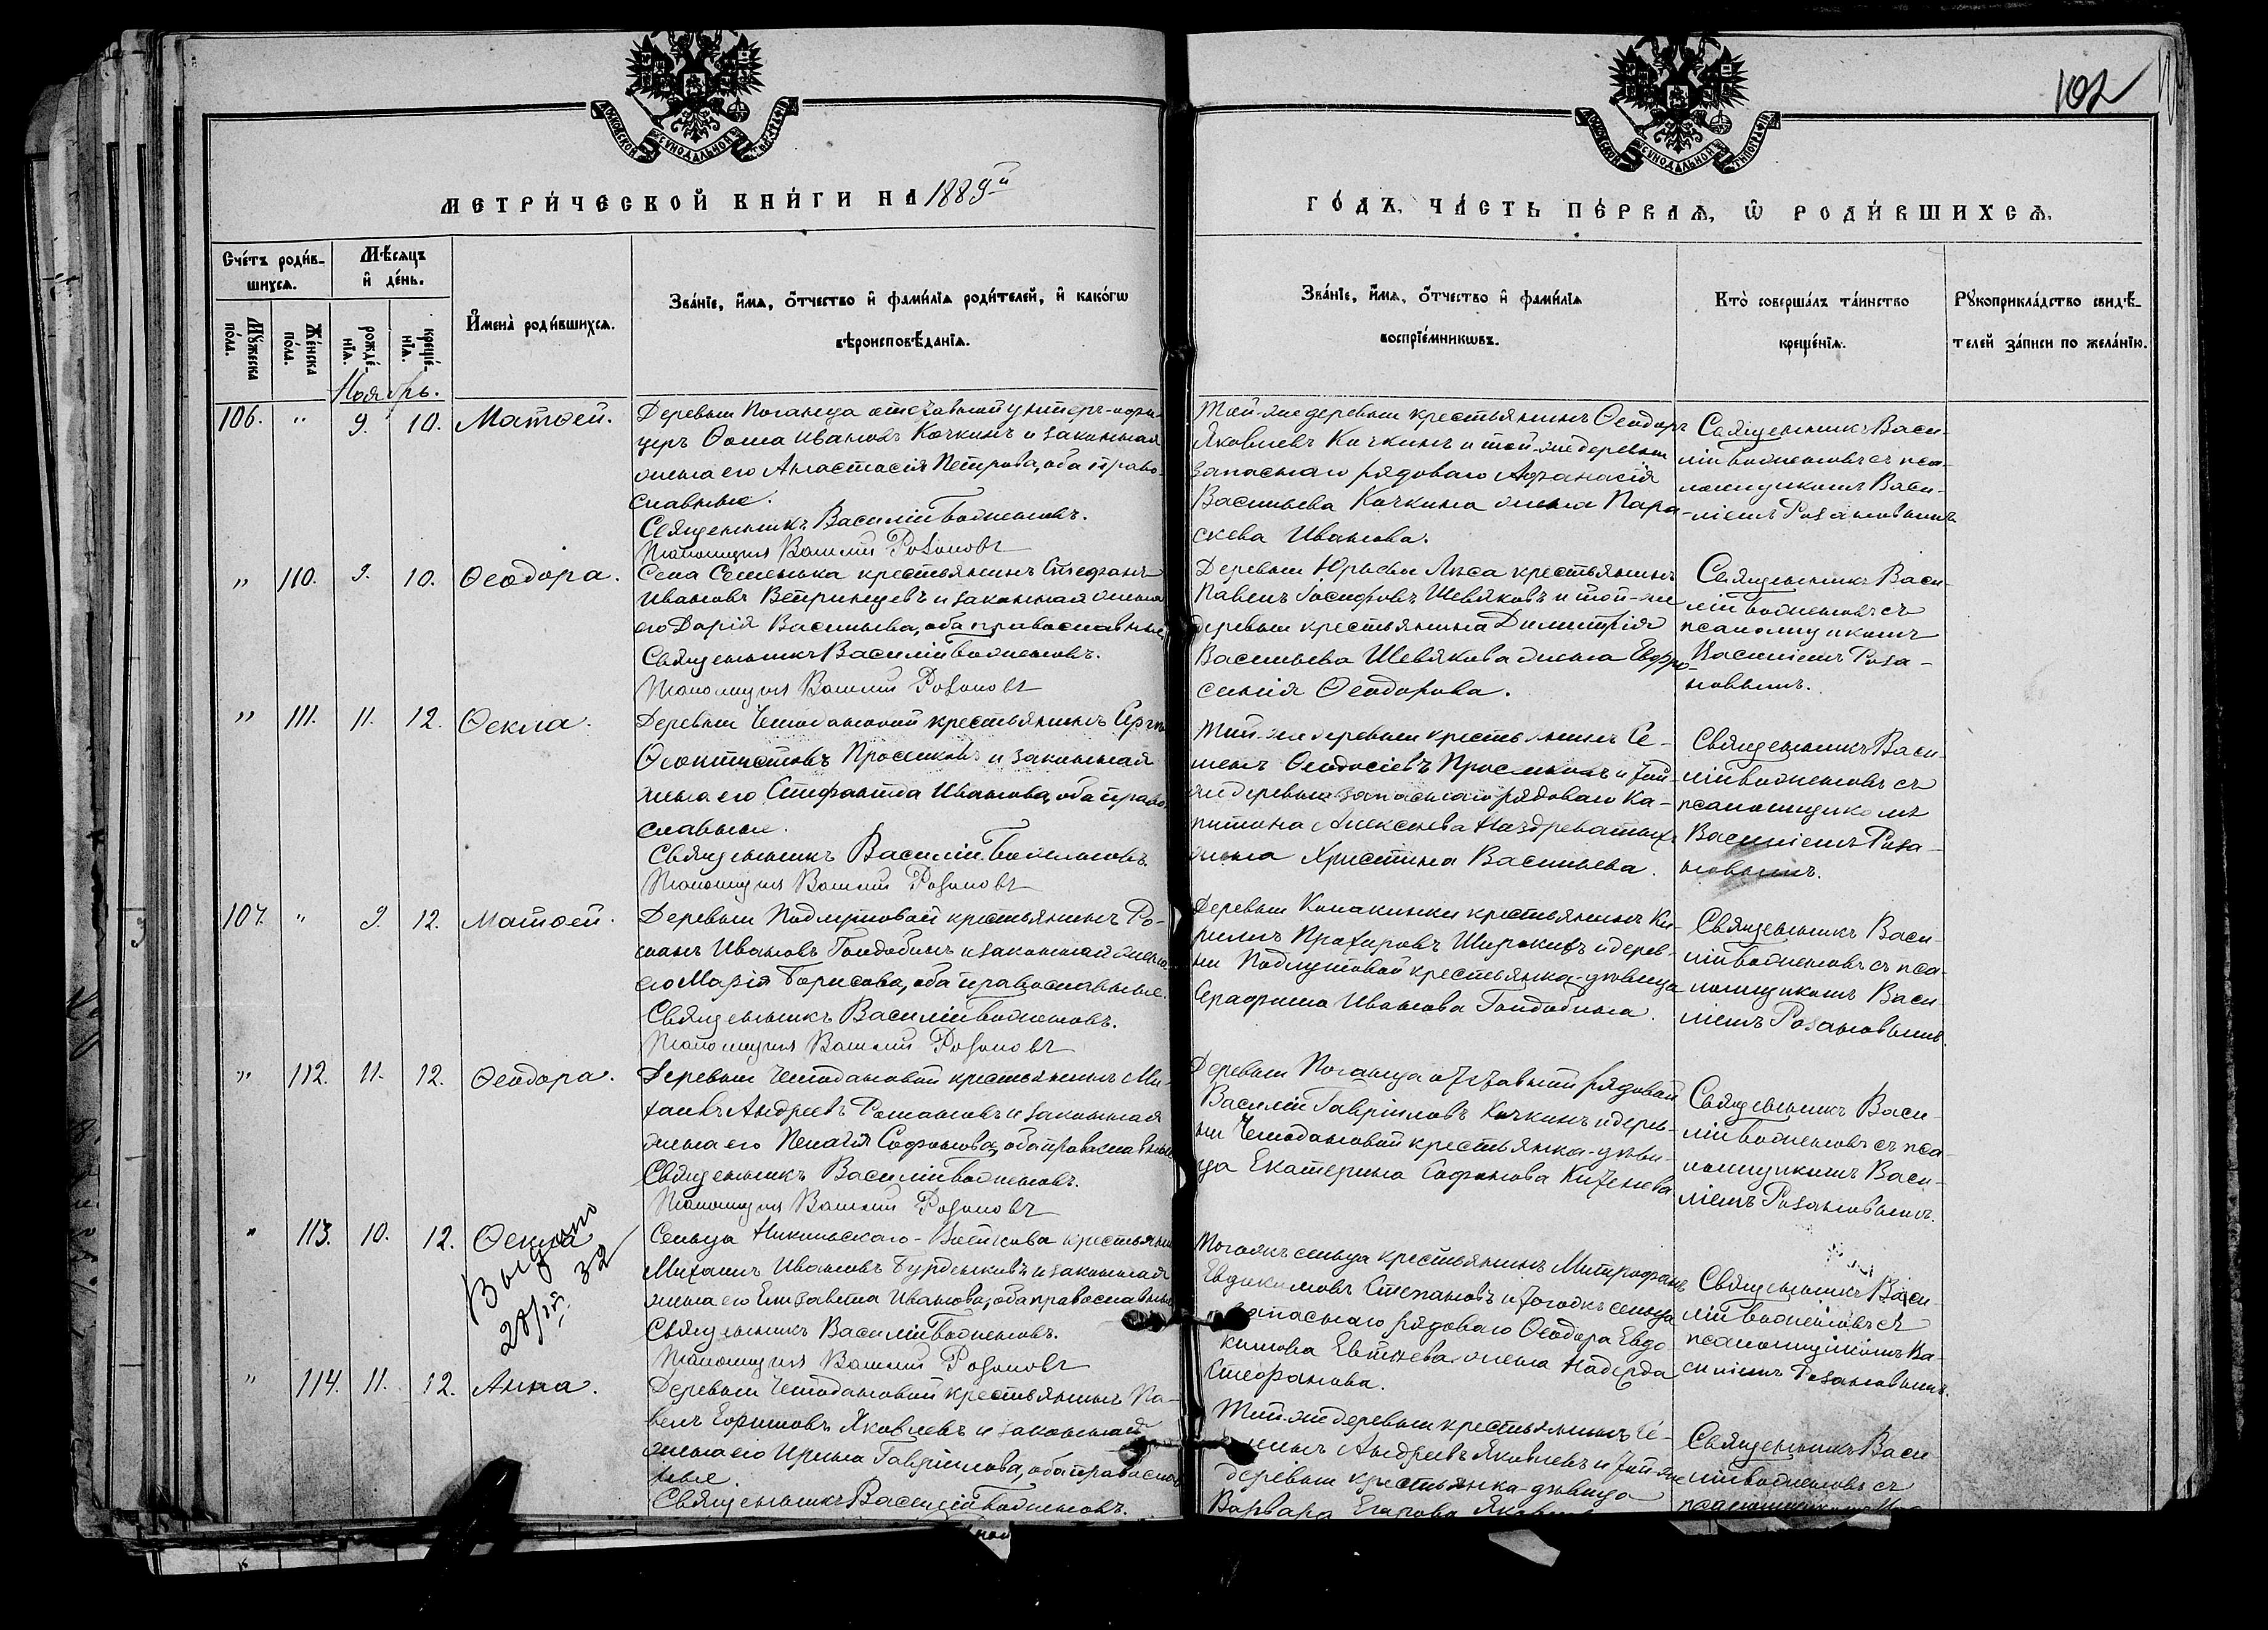 102
МОСКОВСКОЙ СѴНОДАЛЬНОЙ ТИПОГРАФІИ
МОСКОВСКОЙ СѴНОДАЛЬНОЙ ТИПОГРАФІИ
МЕТРИ́ЧЕСКОЙ КНИ́ГИ НА 1889й
ГО́ДЪ, ЧА́СТЬ ПЕ́РВАѦ, Ѽ РОДИ́ВШИХСѦ.
Сче́тъ роди́в-
шихсѧ.
Мѣ́сѧцъ
и҆ де́нь.
Мꙋ́жеска по́ла.
Же́нска по́ла.
рожде́-
нїѧ.
креще́-
нїѧ.
И҆мена̀ роди́вшихсѧ.
Зва́нїе, и҆́мѧ, ѻ҆́тчество и҆ фами́лїѧ роди́телей, и҆ како́гѡ
вѣроисповѣ́данїѧ.
Зва́нїе, и҆́мѧ, ѻ҆́тчество и҆ фами́лїѧ
воспрїе́мникѡвъ.
Кто̀ соверша́лъ та́инство
креще́нїѧ.
Рꙋкоприкла́дство свидѣ́-
телей за́писи по жела́нїю.
Ноябрь.
106. " 9. 10. Матѳей.
Деревни Поганца отставной унтеръ-офи-
церъ Ѳома Ивановъ Кочкинъ и законная
жена его Анастасія Петрова, оба право-
славные.
Священникъ Василій Боженовъ.
Псаломщикъ Василій Розановъ
Той-же деревни крестьянинъ Ѳеодоръ
Яковлевъ Кочкинъ и той-же деревни
запаснаго рядоваго Аѳанасія
Васильева Кочкина жена Пара-
скева Иванова.
Священникъ Васи-
лій Боженовъ съ пса-
ломщикомъ Васи-
ліемъ Розановымъ
" 110. 9. 10. Ѳеодора.
Села Сеченка крестьянинъ Стефанъ
Ивановъ Ветринцевъ и законная жена
его Дарія Васильева, оба православные
Священникъ Василій Боженовъ.
Псаломщикъ Василій Розановъ
Деревни Юрьевы Лиса крестьянинъ
Павелъ Іосифовъ Шевяковъ и той-же
деревни крестьянина Димитрія
Васильева Шевякова жена Евфро-
синія Ѳеодорова.
Священникъ Васи-
лій Боженовъ съ
псаломщикомъ
Василіемъ Роза-
новымъ.
" 111. 11. 12. Ѳекла.
Деревни Чемодановой крестьянинъ Сергѣй
Ѳеоктистовъ Просянковъ и законная
жена его Стефанида Иванова, оба право-
славные.
Священникъ Василій Боженовъ.
Псаломщикъ Василій Розановъ
Той-же деревни крестьянинъ Се-
менъ Ѳеодосіевъ и той-
же деревни запаснаго рядоваго Ка-
питона Алексѣева Ноздреватыхъ
жена Христина Васильева.
Священникъ Васи-
лій Боженовъ съ
псаломщикомъ
Василіемъ Роза-
новымъ.
107. " 9. 12. Матѳей.
Деревни Подлуговой крестьянинъ Ро-
манъ Ивановъ Гондобинъ и законная жена
его Марія Борисова, оба православные.
Священникъ Василій Боженовъ.
Псаломщикъ Василій Розановъ
Деревни крестьянинъ Ки-
риллъ Прохоровъ Широковъ и дерев-
ни Подлуговой крестьянка-дѣвица
Серафима Иванова Гондобина.
Священникъ Васи-
лій Боженовъ съ пса-
ломщикомъ Васи-
ліемъ Розановымъ.
" 112. 11. 12. Ѳеодора.
Деревни Чемодановой крестьянинъ Ми-
хаилъ Андреевъ Романовъ и законная
жена его Пелагія Софонова, оба православные
Священникъ Василій Боженовъ.
Псаломщикъ Василій Розановъ
Деревни Поганца отставной рядовой
Василій Гавріиловъ Кочкинъ и дерев-
ни Чемодановой крестьянка-дѣви-
ца Екатерина Софонова
Священникъ Васи-
лій Боженовъ съ пса-
ломщикомъ Васи-
ліемъ Розановымъ.
" 113. 10. 12. Ѳекла
Выдано
32
Сельца Никольскаго- крестьянинъ
Михаилъ Ивановъ Бурденковъ и законная
жена его Елизавета Иванова, оба православные
Священникъ Василій Боженовъ.
Псаломщикъ Василій Розановъ
Тогожъ сельца крестьянинъ Митрофанъ
Евдокимовъ Степановъ и тогожъ сельца
запаснаго рядоваго Ѳеодора Евдо-
кимова жена Надежда
Стефанова.
Священникъ Васи-
лій Боженовъ съ
псаломщикомъ Ва-
силіемъ Розановымъ.
" 114. 11. 12. Анна.
Деревни Чемодановой крестьянинъ Па-
велъ Ефимовъ Яковлевъ и законная
жена его Ирина Гавріилова, оба православ-
ные.
Священникъ Василій Боженовъ.
Той-же деревни крестьянинъ Се-
Андреевъ Яковлевъ и той-же
деревни крестьянка-дѣвица
Варвара Егорова
Священникъ Васи-
лій Боженовъ съ